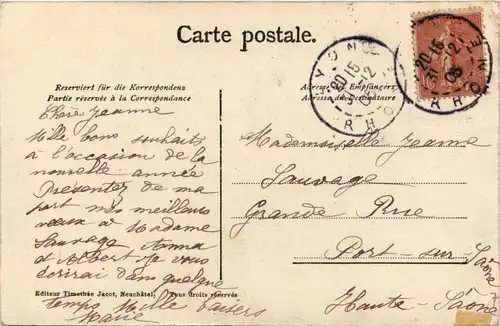 Carte postale.
Reserviert für die Korrespondenz
Partie réservée à la Correspondance
Adresse des Empfängers
Adresse du Destinataire
Chère Jeanne
Mille bons souhaits
à l'occasion de la
nouvelle année
Présentez de ma
part mes meilleurs
vœux à Madame
Sauvage, Anna
et Albert je vous
écrirai dans quelque
temps Mille baisers
Marie
Mademoiselle Jeanne
Sauvage
Grande Rue
Port-sur-Saône
Haute-Saône
Editeur Timothée Jacot, Neuchâtel. Tous droits réservés
LYON
20 15
31 12
RHONE
20 15
31 12
RHONE